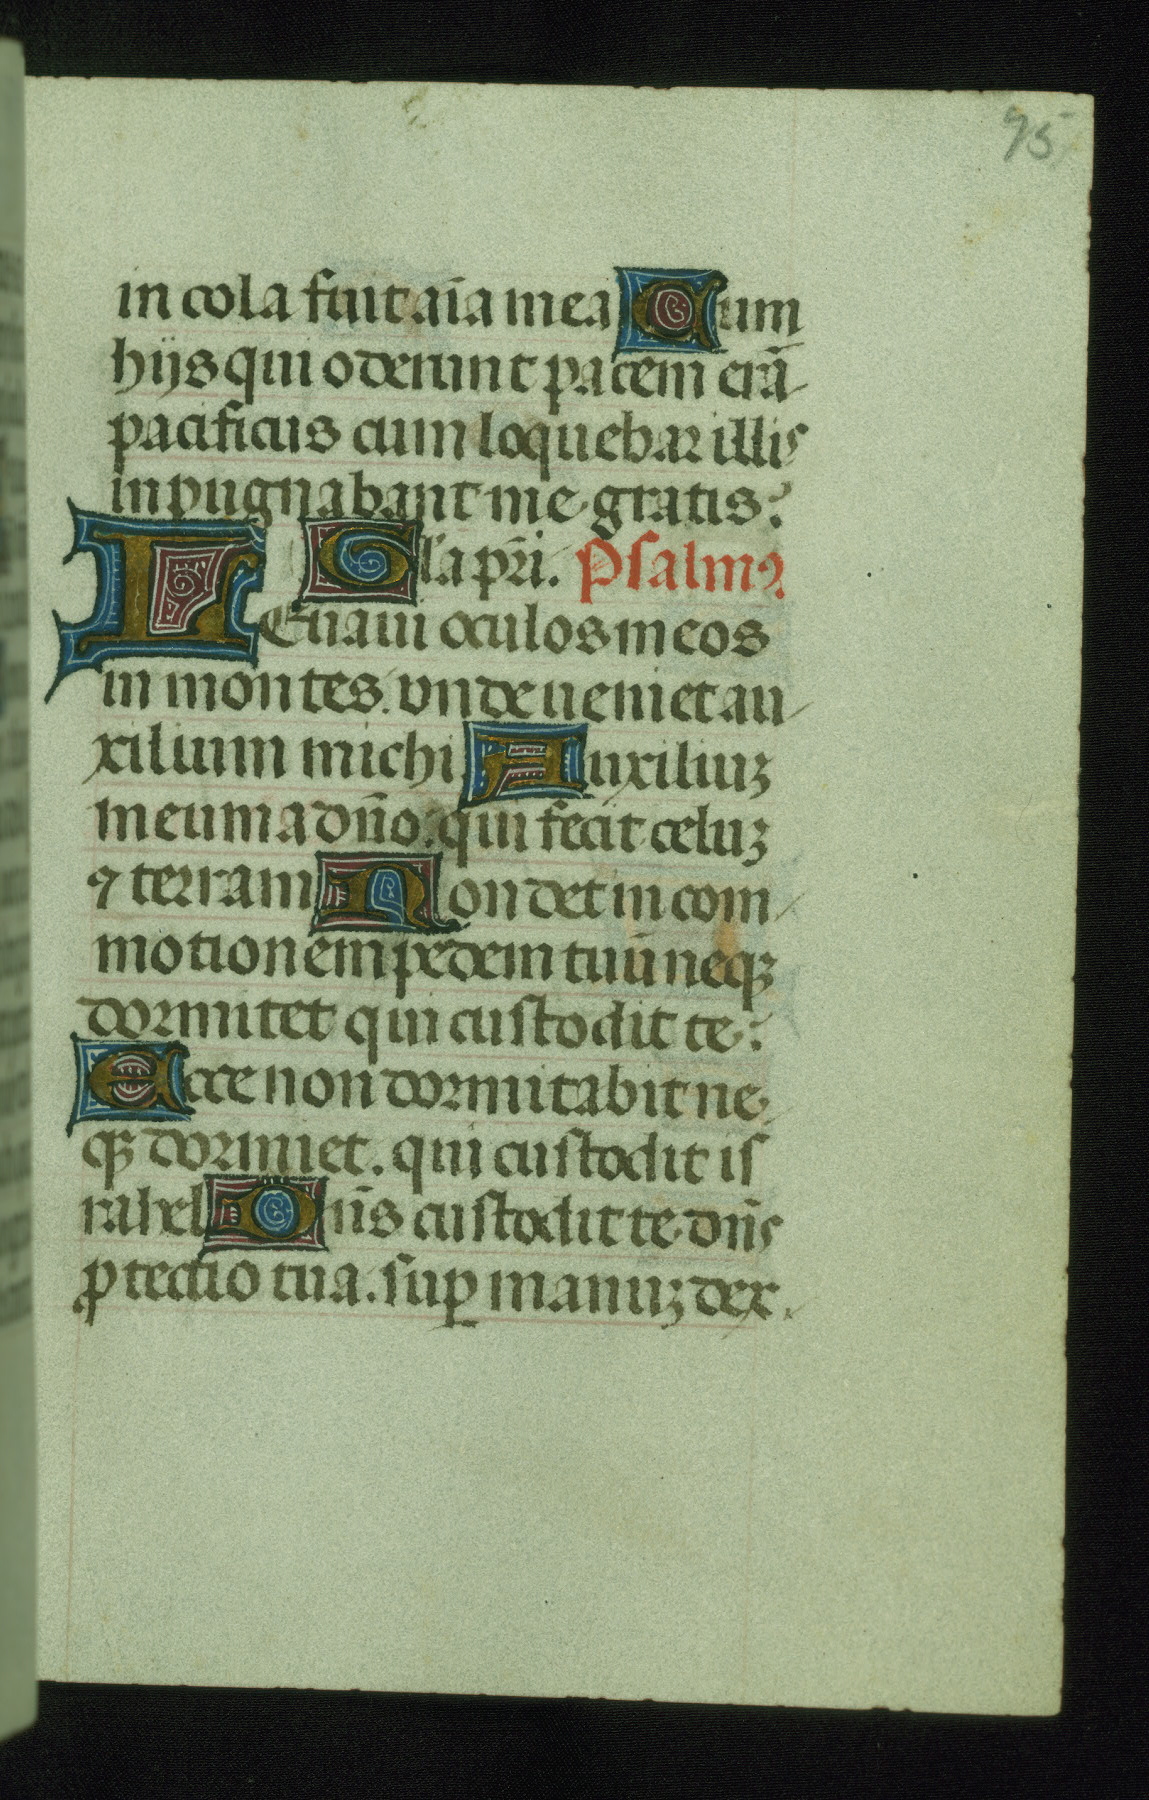 95
in cola fuit aīa mea Cum
hijs qui oderunt pacem erā
pacificus cum loquebar illis
inpugnabant me gratis.
Gl'a pr̄i. Psalmꝰ
LEuaui oculos meos
in montes. vnde ueniet au
xilium michi Auxiliuꝫ
meum a dn̄o. qui fecit celuꝫ
⁊ terram Non det in com
motionem pedem tuū neqꝫ
dormitet qui custodit te.
Ecce non dormitabit ne
qꝫ dormiet. qui custodit is
rahel Dn̄s custodit te dn̄s
ꝓtectio tua. sup̲ manuꝫ dex